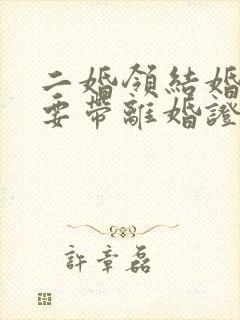 二婚領結婚
要帶離婚證
許章磊